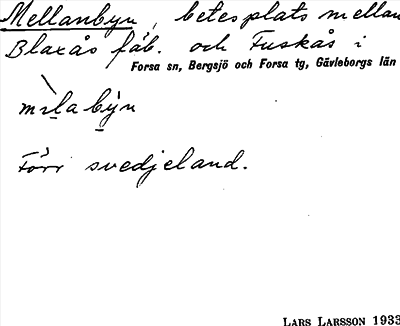 Mellanbyn, betesplats mellan
Blaxås fäb. och Fuskås i
Forsa sn, Bergsjö och Forsa tg, Gävleborgs län
Förr svedjeland.
LARS LARSSON 1933